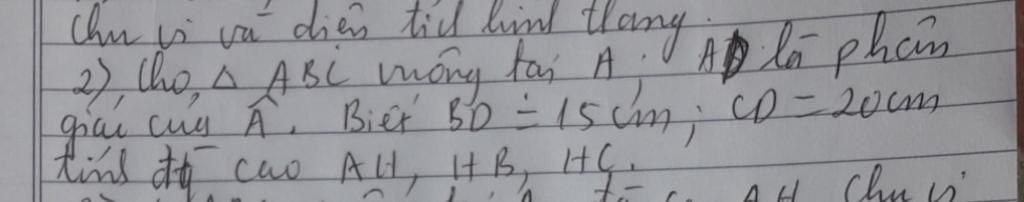 Chu vi và diện tích hình thang.
2), Cho, Δ ABC vuông tại A; AD là phân
giác của Â. Biết BD = 15 cm; CD = 20cm
tính đg cao AH, HB, HC.
AH Chu vi